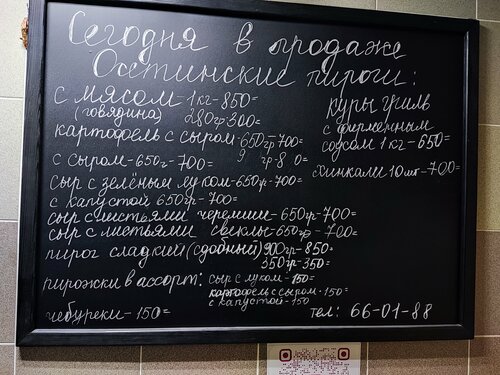 Сегодня в продаже
Осетинские пироги:
с мясом - 1кг - 850=
(говядина) 280гр-300=
картофель с сыром - 650гр - 700=
с сыром - 650г - 700=
сыр с зелёным луком - 650гр - 700=
с капустой 650гр - 700=
сыр с листьями черемши - 650гр - 700=
сыр с листьями свеклы - 650гр - 700=
пирог сладкий (сдобный) 900гр - 850=
350гр - 350=
пирожки в ассорт: сыр с луком - 150=
картофель с сыром - 150=
с капустой - 150
чебуреки - 150=
куры гриль
с фирменным
соусом 1кг - 650=
хинкали 10шт - 700=
тел: 66-01-88